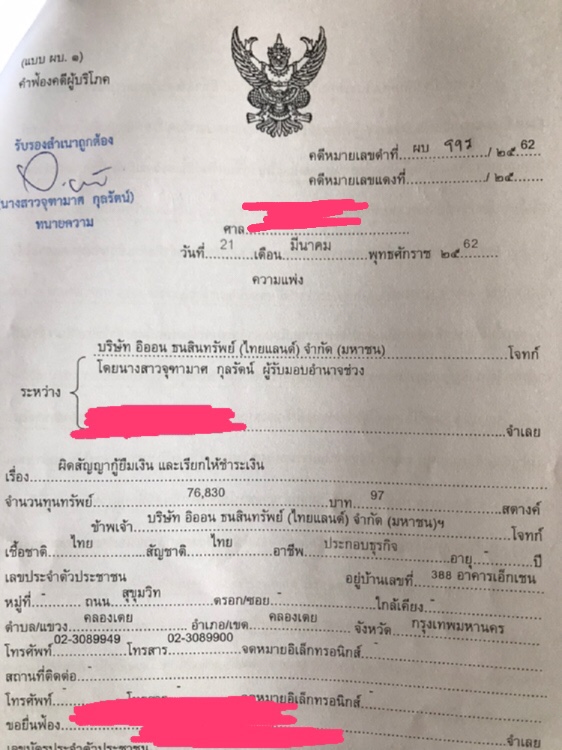 (แบบ ผบ. ๑)
คำฟ้องคดีผู้บริโภค
รับรองสำเนาถูกต้อง
(นางสาวจุฑามาศ กุลรัตน์)
ทนายความ
คดีหมายเลขดำที่ ผบ /๒๕ 62
คดีหมายเลขแดงที่ /๒๕
ศาล
วันที่ 21 เดือน มีนาคม พุทธศักราช ๒๕ 62
ความแพ่ง
ระหว่าง
บริษัท อิออน ธนสินทรัพย์ (ไทยแลนด์) จำกัด (มหาชน) โจทก์
โดยนางสาวจุฑามาศ กุลรัตน์ ผู้รับมอบอำนาจช่วง
จำเลย
เรื่อง ผิดสัญญากู้ยืมเงิน และเรียกให้ชำระเงิน
จำนวนทุนทรัพย์ 76,830 บาท 97 สตางค์
ข้าพเจ้า บริษัท อิออน ธนสินทรัพย์ (ไทยแลนด์) จำกัด (มหาชน)ฯ โจทก์
เชื้อชาติ ไทย สัญชาติ ไทย อาชีพ ประกอบธุรกิจ อายุ - ปี
เลขประจำตัวประชาชน อยู่บ้านเลขที่ 388 อาคารเอ็กเชน
หมู่ที่ - ถนน สุขุมวิท ตรอก/ซอย - ใกล้เคียง -
ตำบล/แขวง คลองเตย อำเภอ/เขต คลองเตย จังหวัด กรุงเทพมหานคร
โทรศัพท์ 02-3089949 โทรสาร 02-3089900 จดหมายอิเล็กทรอนิกส์ -
สถานที่ติดต่อ -
โทรศัพท์ - จดหมายอิเล็กทรอนิกส์ -
ขอยื่นฟ้อง จำเลย
เลขบัตรประจำตัวประชาชน